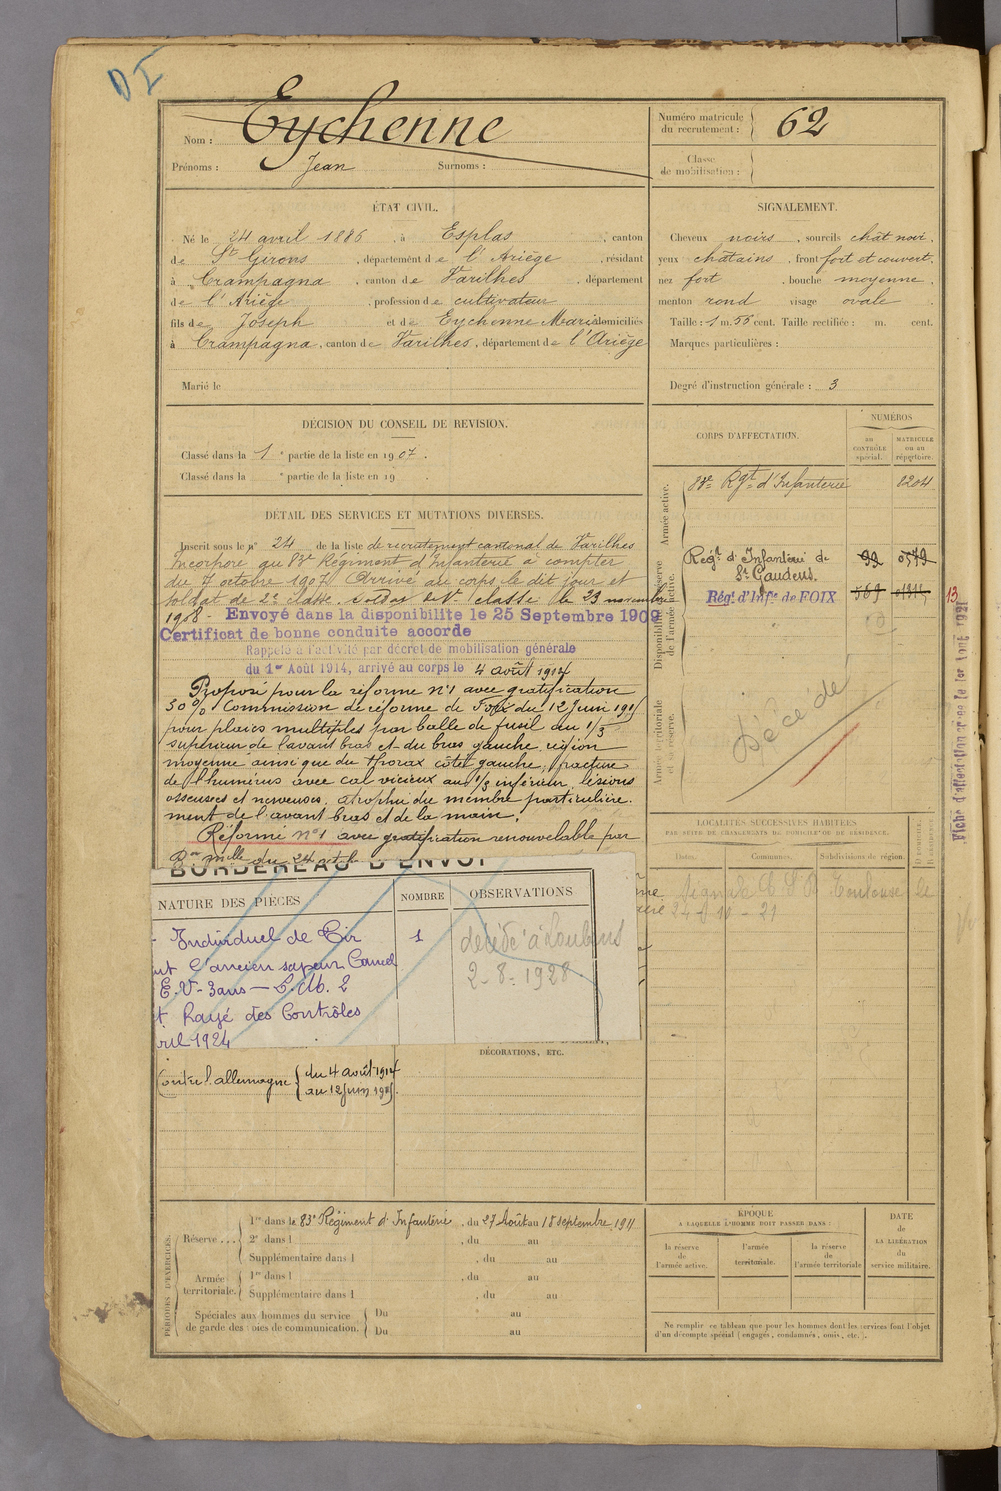 D I
Nom : Eychenne
Prénoms : Jean Surnoms :
Numéro matricule
du recrutement : 62
Classe
de mobilisation :
ÉTAT CIVIL.
Né le 24 avril 1886, à Esplas, canton
de St Girons, département de l'Ariège, résidant
à Crampagna, canton de Varilhes, département
de l'Ariège, profession de cultivateur
fils de Joseph et de Eychenne Marie domiciliés
à Crampagna, canton de Varilhes, département de l'Ariège
Marié le
SIGNALEMENT.
Cheveux noirs, sourcils chât noir,
yeux châtains, front fort et couvert,
nez fort, bouche moyenne,
menton rond visage ovale
Taille : 1 m. 55 cent. Taille rectifiée : m. cent.
Marques particulières :
Degré d'instruction générale : 3
DÉCISION DU CONSEIL DE REVISION.
Classé dans la 1e partie de la liste en 1907.
Classé dans la e partie de la liste en 19
DÉTAIL DES SERVICES ET MUTATIONS DIVERSES.
Inscrit sous le n° 24 de la liste de recrutement cantonal de Varilhes
Incorporé au 83e Régiment d'Infanterie à compter
du 7 octobre 1907. Arrivé au corps le dit jour et
soldat de 2e classe. Soldat de 1re classe le 23 novembre
1908. Envoyé dans la disponibilite le 25 Septembre 1909
Certificat de bonne conduite accorde
Rappelé à l'activité par décret de mobilisation générale
du 1er Août 1914, arrivé au corps le 4 août 1914
Proposé pour la réforme n°1 avec gratification
30 % Commission de réforme de Foix du 12 Juin 1915
pour plaies multiples par balle de fusil du 1/3
supérieur de l'avant bras et du bras gauche, région
moyenne ainsi que du thorax côté gauche, fracture
de l'humérus avec cal vicieux au 1/3 inférieur, lésions
osseuses et nerveuses, atrophie du membre particulière-
ment de l'avant bras et de la main.
Réformé n°1 avec gratification renouvelable par
Don mlle du 24
BORDEREAU D'ENVOI
NATURE DES PIÈCES NOMBRE OBSERVATIONS
Individuel de Tir 1 décédé à Loubens
l'ancien sapeur Camel 2-8-1928
E.V. 3 ans
Rayé des Contrôles
1924
DÉCORATIONS, ETC.
Contre l'allemagne { du 4 août 1914
au 12 Juin 1915.
CORPS D'AFFECTATION.
NUMÉROS
au
CONTRÔLE
spécial.
MATRICULE
ou au
répertoire.
Armée active.
83e Rgt d'Infanterie 2204
Disponibilité et réserve
de l'armée active.
Régt d'Infanterie de 99 0579
St Gaudens.
Rég. d'Infie de FOIX 569
Armée territoriale
et sa réserve.
Décédé
13
Fiche d'affectation créée le 1er Août 1921
LOCALITÉS SUCCESSIVES HABITÉES
PAR SUITE DE CHANGEMENTS DE DOMICILE OU DE RÉSIDENCE.
Dates. Communes. Subdivisions de région.
Toulouse le
PÉRIODES D'EXERCICES.
Réserve ... 1re dans le 83e Régiment d'Infanterie, du 27 Août au 18 septembre 1911
2e dans l , du au
Supplémentaire dans l , du au
Armée
territoriale. 1re dans l , du au
Supplémentaire dans l , du au
Spéciales aux hommes du service
de garde des voies de communication. Du au
Du au
ÉPOQUE
A LAQUELLE L'HOMME DOIT PASSER DANS :
la réserve
de
l'armée active.
l'armée
territoriale.
la réserve
de
l'armée territoriale
DATE
de
LA LIBÉRATION
du
service militaire.
Ne remplir ce tableau que pour les hommes dont les services font l'objet
d'un décompte spécial (engagés, condamnés, omis, etc.).